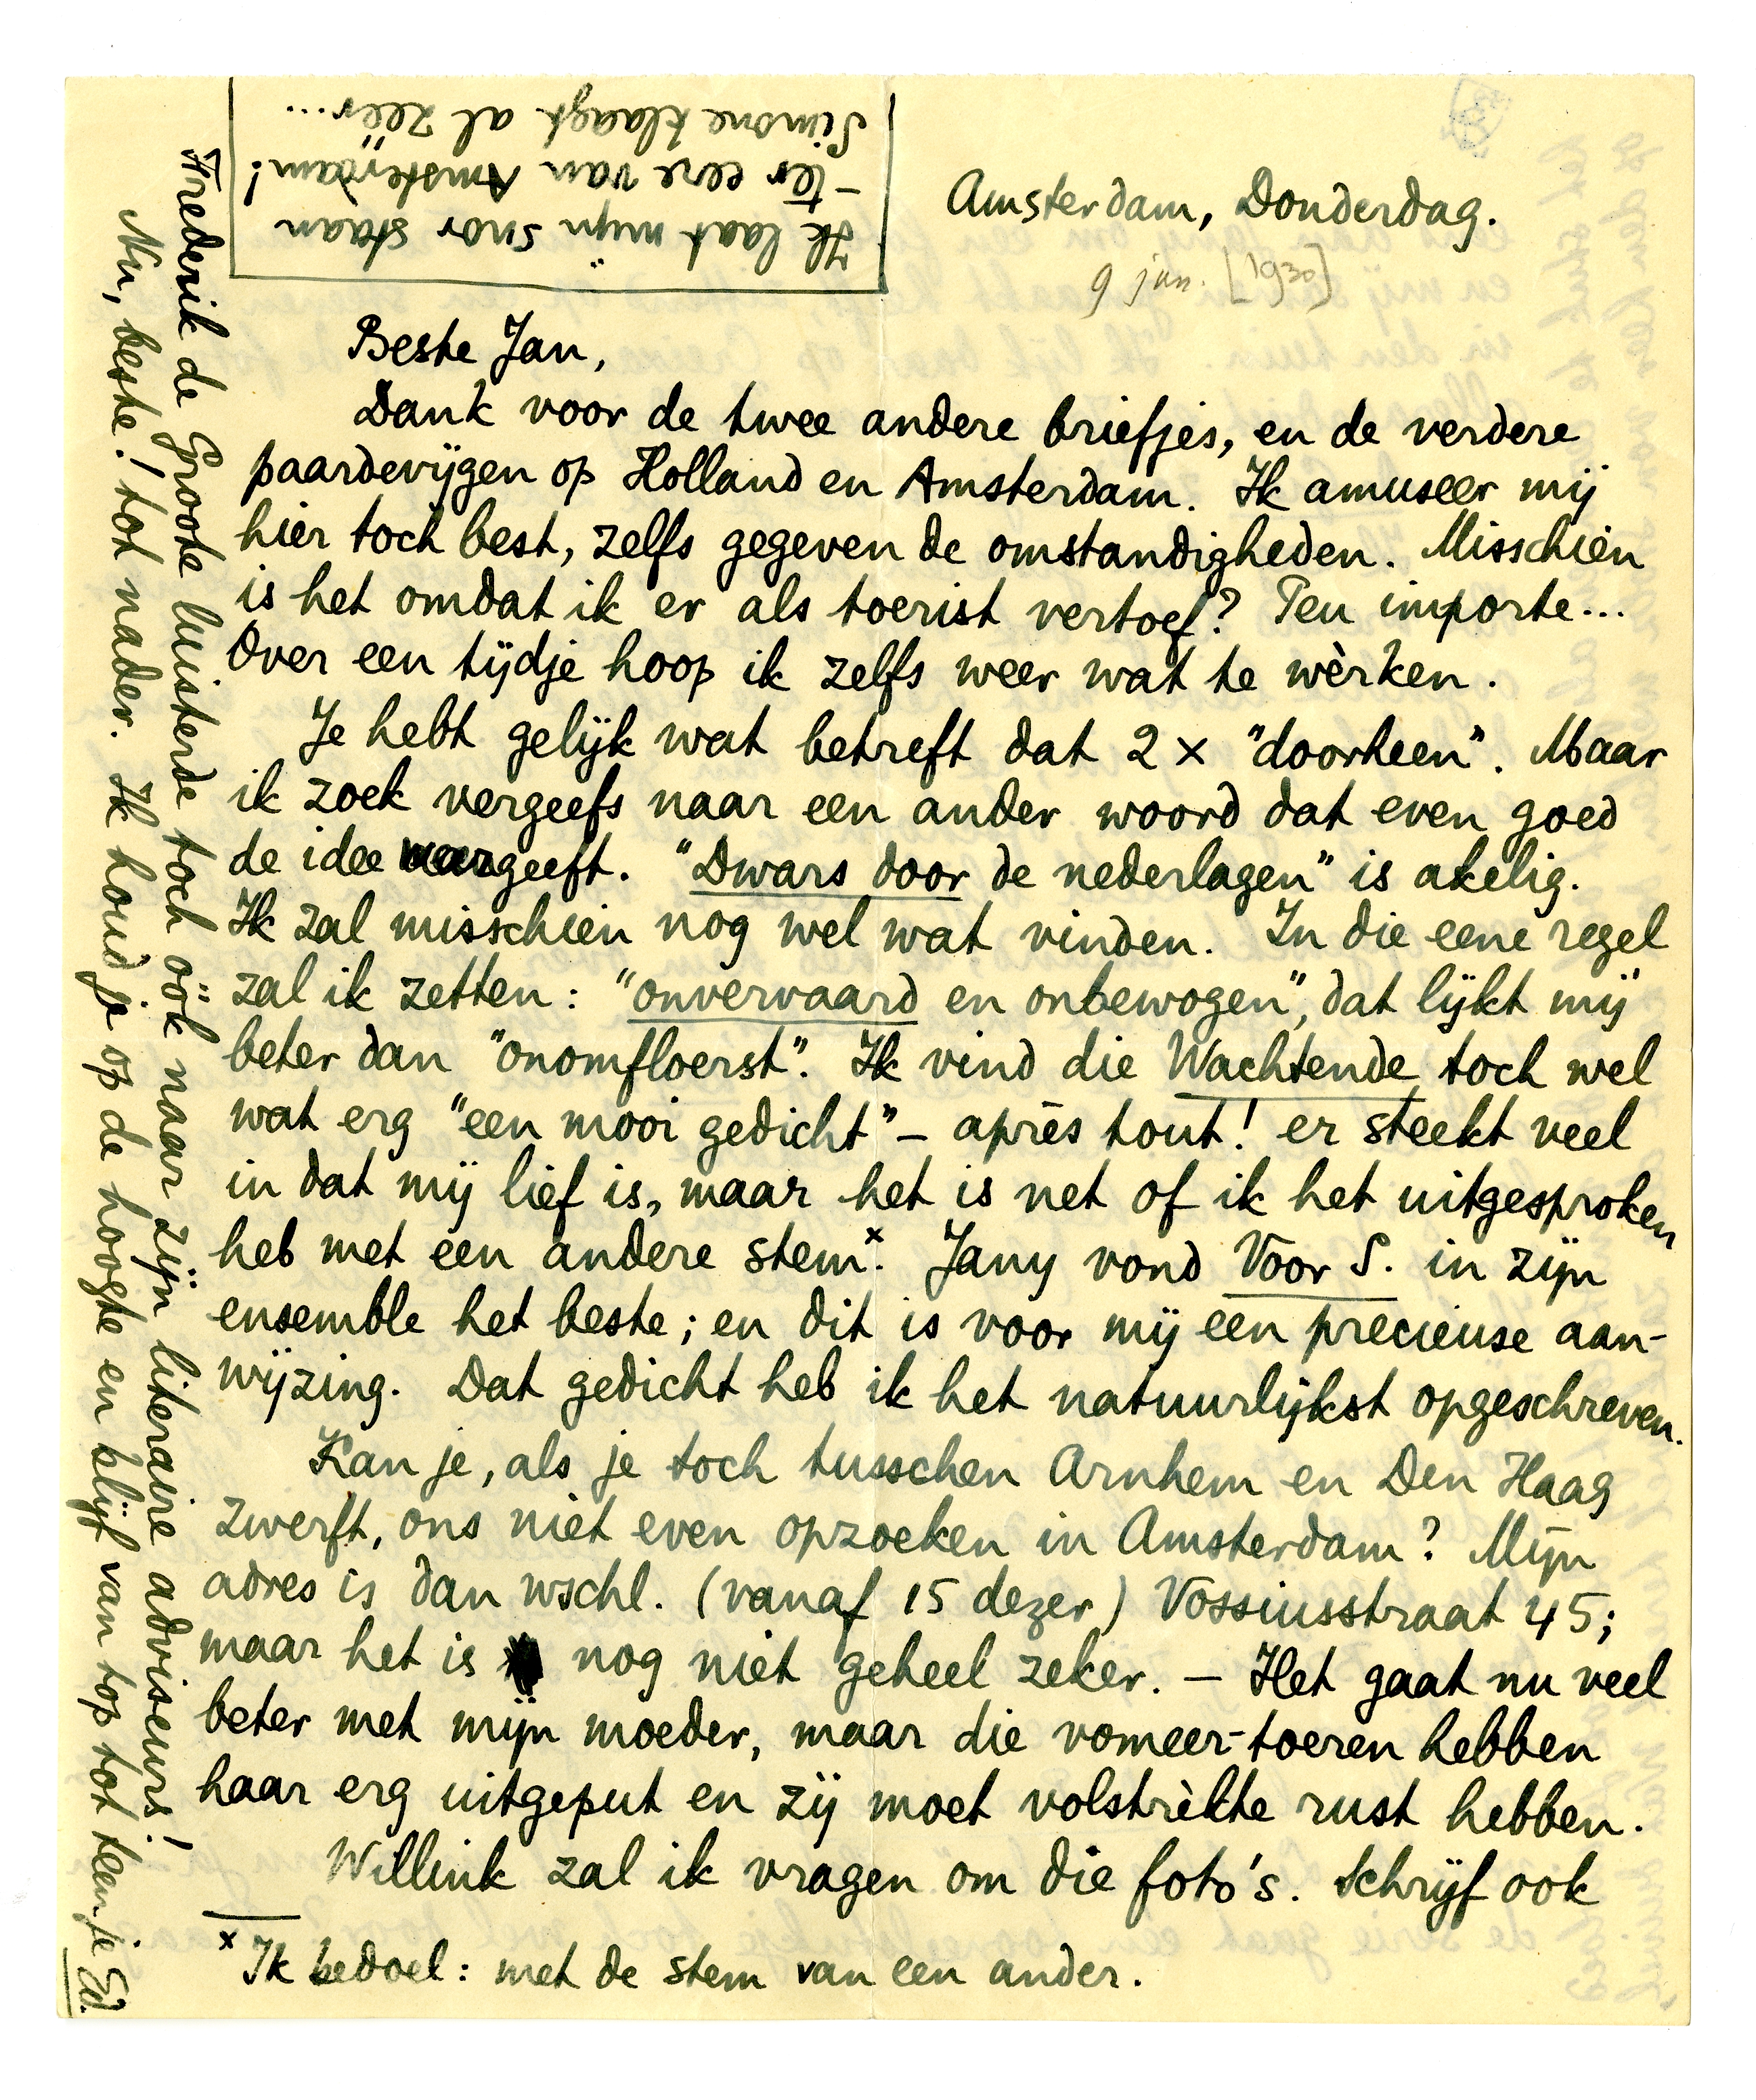 Amsterdam, Donderdag.
9 jan. [1930]
Beste Jan,
Dank voor de twee andere briefjes, en de verdere
paardevijgen op Holland en Amsterdam. Ik amuseer mij
hier toch best, zelfs gegeven de omstandigheden. Misschien
is het omdat ik er als toerist vertoef? Peu importe...
Over een tijdje hoop ik zelfs weer wat te wèrken.
Je hebt gelijk wat betreft dat 2 × "doorheen". Maar
ik zoek vergeefs naar een ander woord dat even goed
de idee weergeeft. "Dwars door de nederlagen" is akelig.
Ik zal misschien nog wel wat vinden. In die eene regel
zal ik zetten: "onvervaard en onbewogen", dat lijkt mij
beter dan "onomfloerst". Ik vind die Wachtende toch wel
wat erg "een mooi gedicht" – après tout! er steekt veel
in dat mij lief is, maar het is net of ik het uitgesproken
heb met een andere stem.ˣ Jany vond Voor S. in zijn
ensemble het beste; en dit is voor mij een precieuse aan-
wijzing. Dat gedicht heb ik het natuurlijkst opgeschreven.
Kan je, als je toch tusschen Arnhem en Den Haag
zwerft, ons niet even opzoeken in Amsterdam? Mijn
adres is dan wschl. (vanaf 15 dezer) Vossiusstraat 45;
maar het is nog niet geheel zeker. – Het gaat nu veel
beter met mijn moeder, maar die vomeer-toeren hebben
haar erg uitgeput en zij moet volstrèkte rust hebben.
Willink zal ik vragen om die foto's. Schrijf ook
x Ik bedoel: met de stem van een ander.
Frederik de Groote luisterde toch óók naar zijn literaire adviseurs!
Nu, beste! tot nader. Ik houd je op de hoogte en blijf van top tot teen je Ed.
Ik laat mijn snor staan
– ter eere van Amsterdam!
Simone klaagt al zéér...